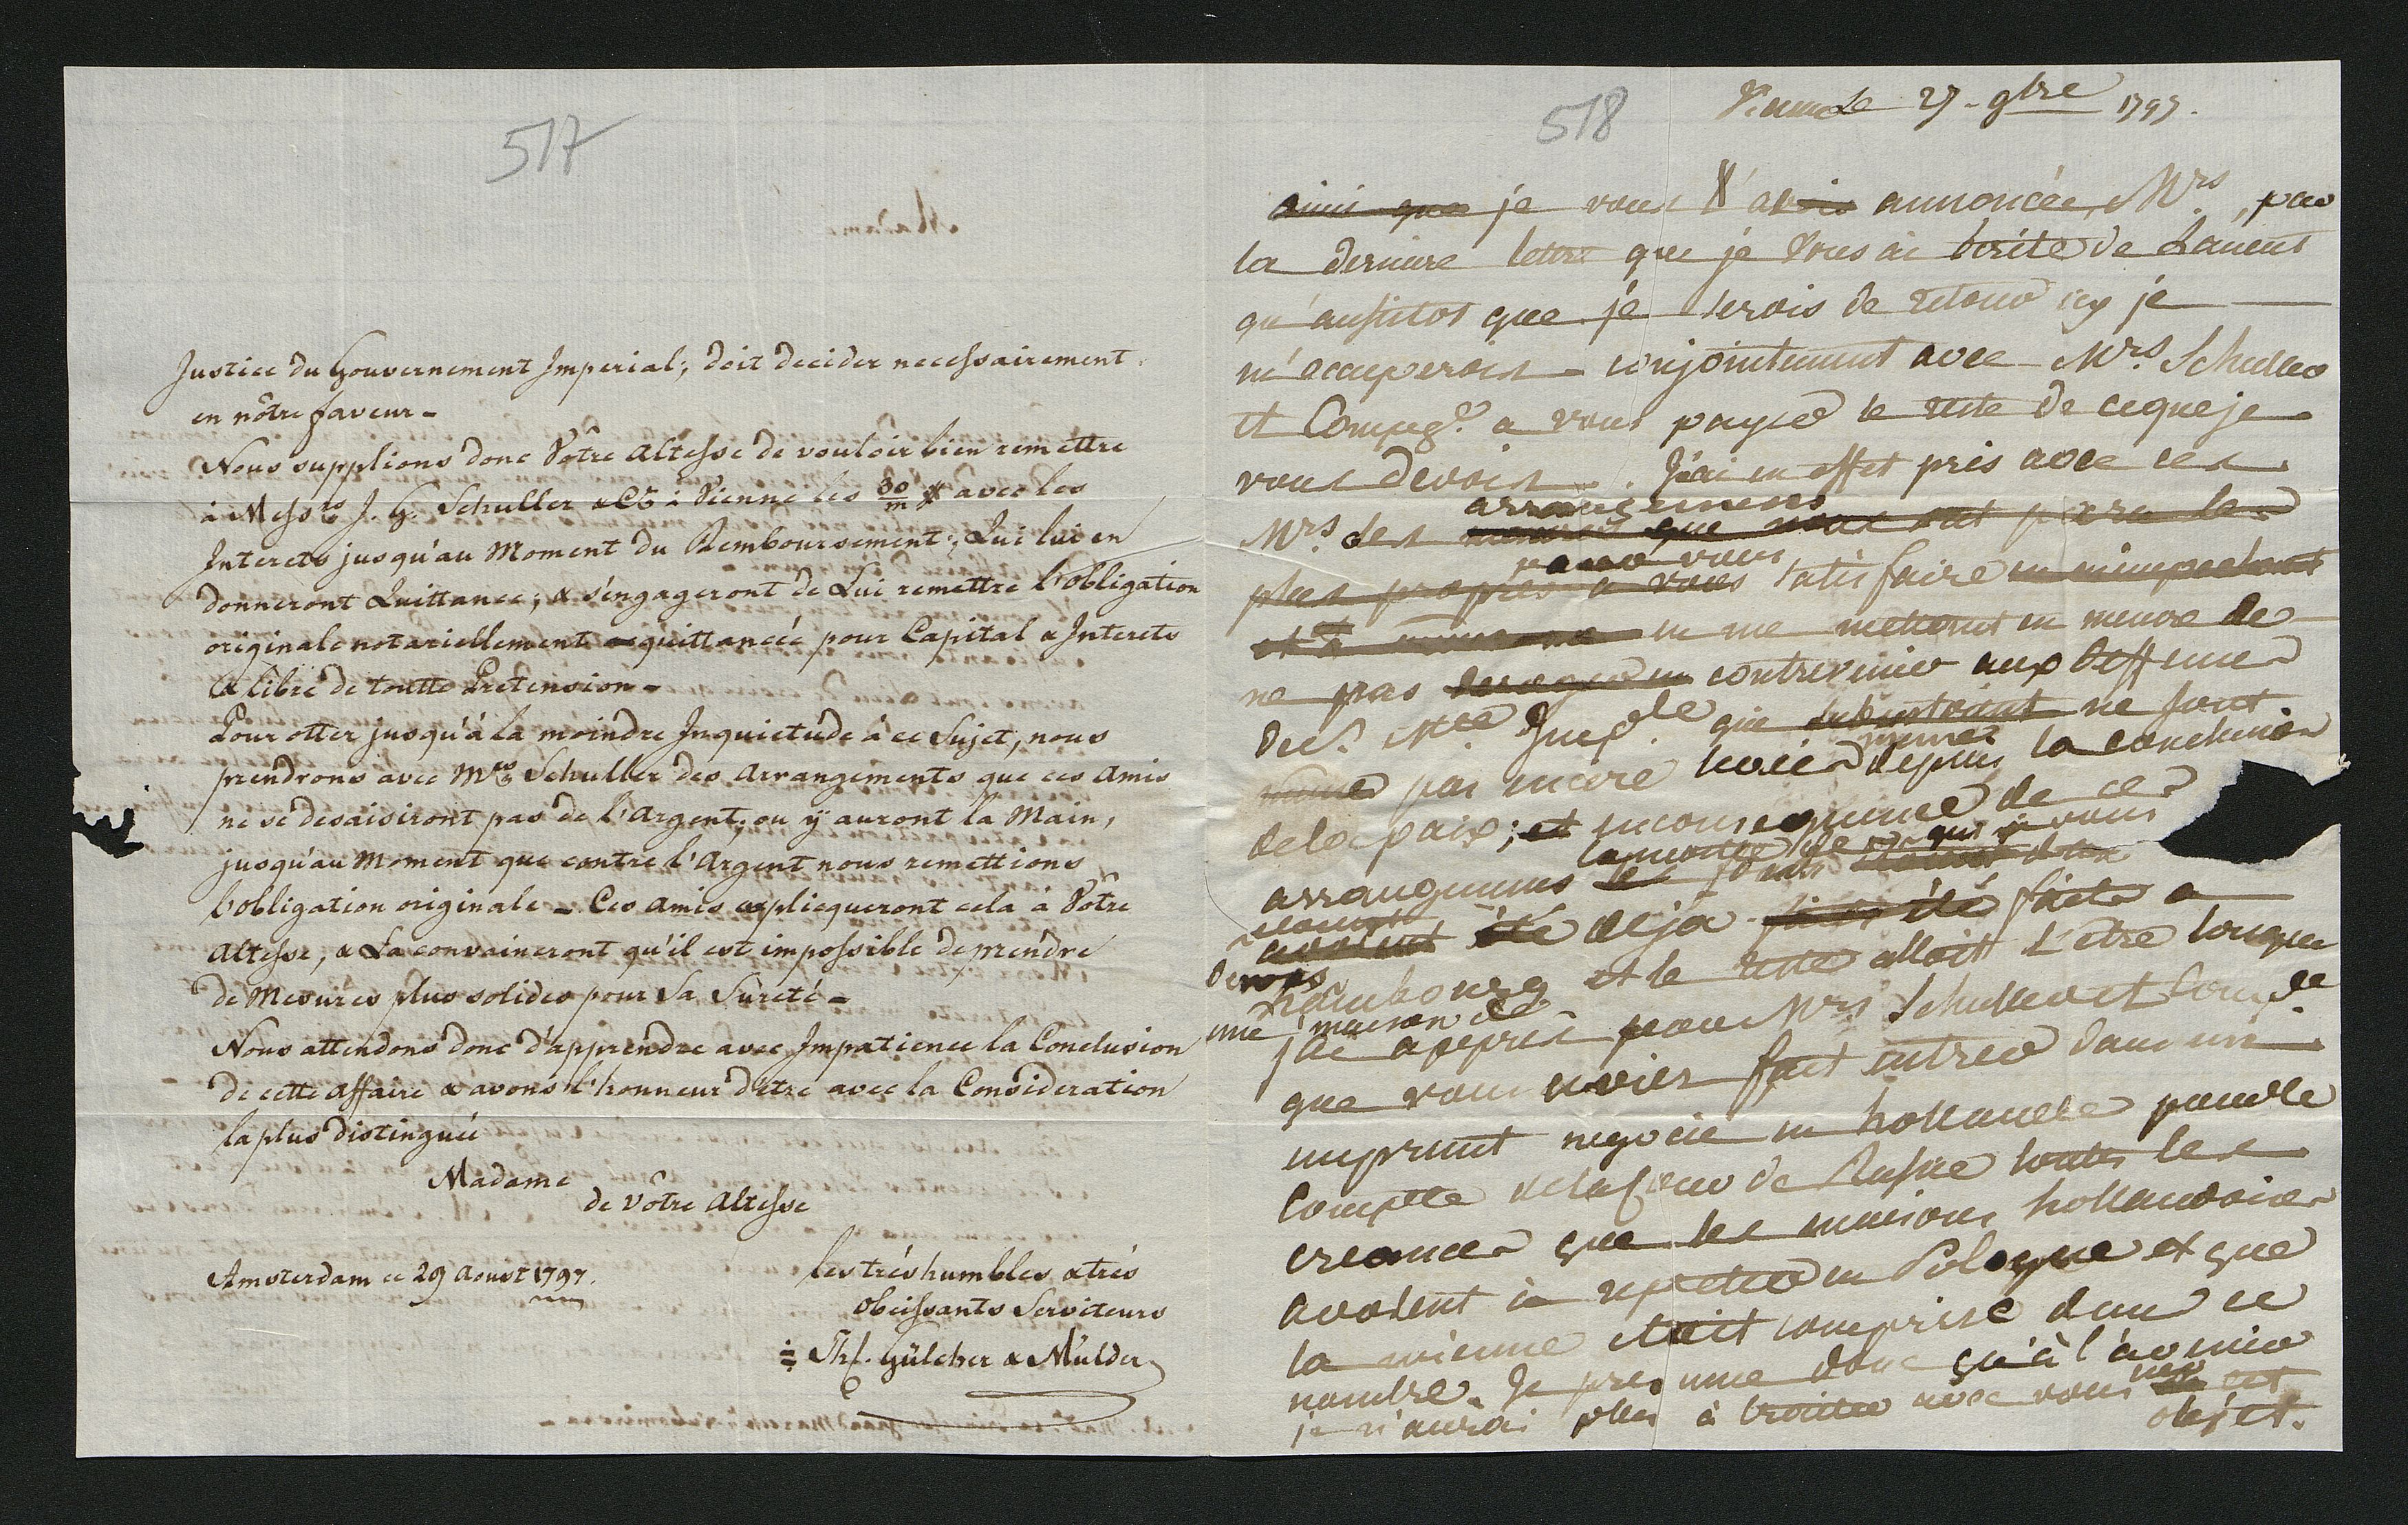 517
Justice du Gouvernement Imperial; doit decider necessairement
en nôtre faveur -
Nous supplions donc Vôtre Altesse de vouloir bien remettre
à Messrs J. G. Schuller & Co à Vienne les 30/m # avec les
Interets jusqu'au Moment du Remboursement; Qui lui en
donneront Quittance; & s'engageront de Lui remettre l'obligation
originale notariellement quittancée pour Capital & Interets
& libre de toutte Pretension -
Pour otter jusqu'à la moindre Inquietude à ce Sujet, nous
prendrons avec Mrs Schuller des Arrangements que ces Amis
ne se desaisiront pas de l'Argent, ou ÿ auront la Main,
jusqu'au Moment que contre l'Argent nous remettions
l'obligation originale - Ces Amis expliequeront cela à Vôtre
Altesse, & La convaineront qu'il est impossible de prendre
de Mesures plus solides pour Sa Sûreté -
Nous attendons donc d'apprendre avec Impatience la Conclusion
de cette Affaire & avons l'honneur d'etre avec la Consideration
la plus distinguée
Madame
de Vôtre Altesse
Amsterdam ce 29 Aoust 1797.
les très humbles & très
obeissants Serviteurs
Thl. Gülcher & Mulder
518
Vienne Le 27 - 9bre 1797.
ainsi que je vous l'avois annoncée, Mrs, par
la derniere lettre que je vous ai écrite de Lancut
qu'aussitot que je serois de retour icy je
m'occuperois conjointement avec Mrs. Schuller
et Compe. a vous payer le reste de ceque je
vous devois. J'ai en effet pris avec ces
arrangemens
Mrs. des que nous ont paru les
pour vous
plus propres a vous satisfaire
en me mettant en mesure de
ne pas contrevenir aux deffenses
de S. Mté Imple. qui ne sont
même
pas encore levées depuis la conclusion
de la paix; et en consequence de ces
la moitié de ce que je vous
arrangemens les fonds
devois
etoient été deja faits a
hambourg et le reste alloit l'etre lorsque
une maison de
j'ai appris par Mrs Schuller et Compe.
que vous aviez fait entrer dans un
emprunt negocié en hollande pour le
Compte de la Cour de Russie toutes les
creances que les maisons hollandoises
avoient à repeter en Pologne et que
la mienne etoit comprise dans ce
nombre. Je presume donc qu'à l'avenir
je n'aurai plus à traiter avec vous sur cet
objet.